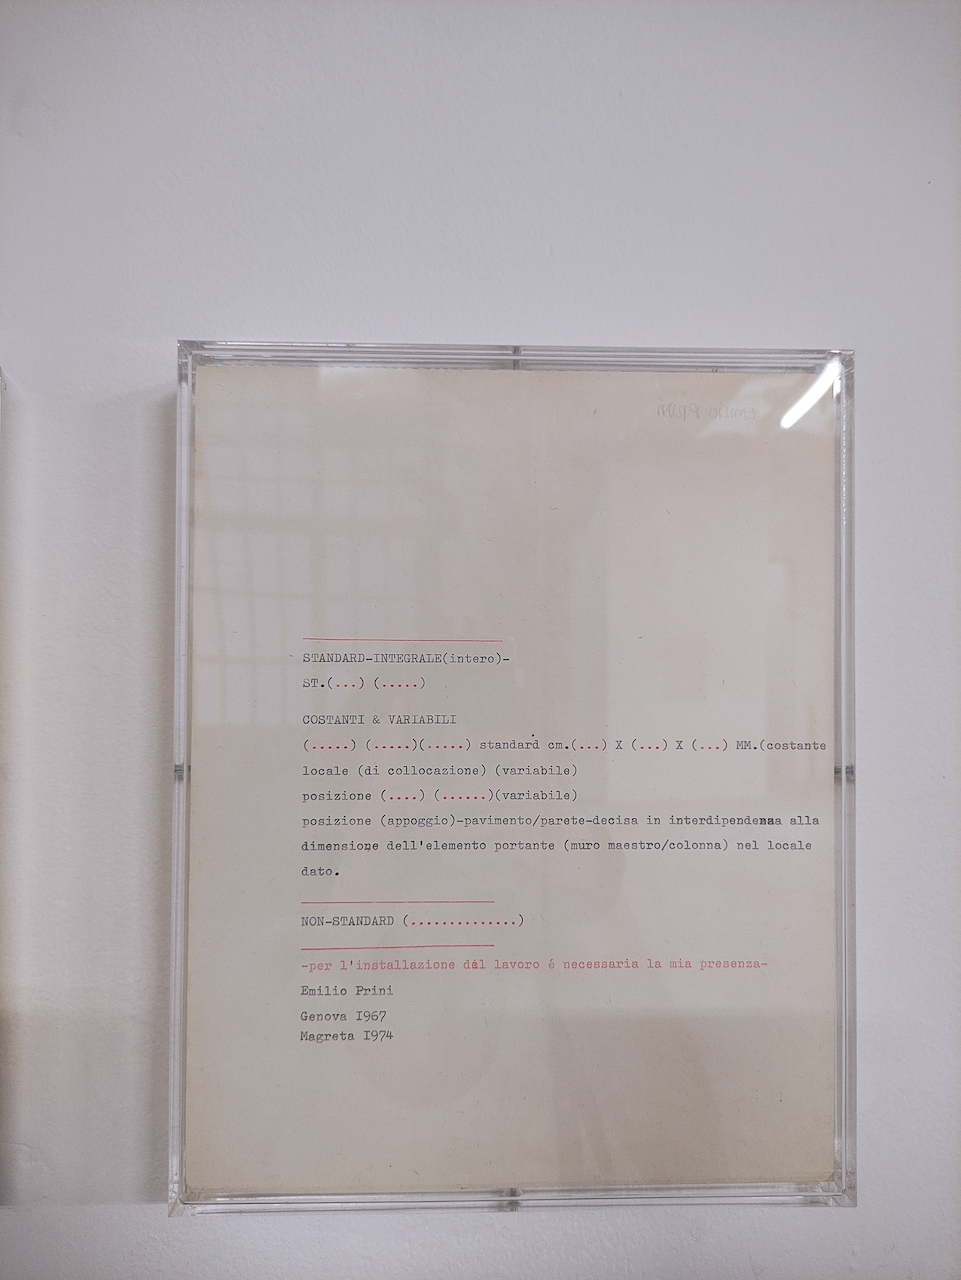 Emilio Prini
STANDARD-INTEGRALE(intero)-
ST.(...) (.....)
COSTANTI & VARIABILI
(.....) (.....)(.....) standard cm.(...) X (...) X (...) MM.(costante
locale (di collocazione) (variabile)
posizione (....) (......)(variabile)
posizione (appoggio)-pavimento/parete-decisa in interdipendenza alla
dimensione dell'elemento portante (muro maestro/colonna) nel locale
dato.
NON-STANDARD (..............)
-per l'installazione dal lavoro é necessaria la mia presenza-
Emilio Prini
Genova I967
Magreta I974